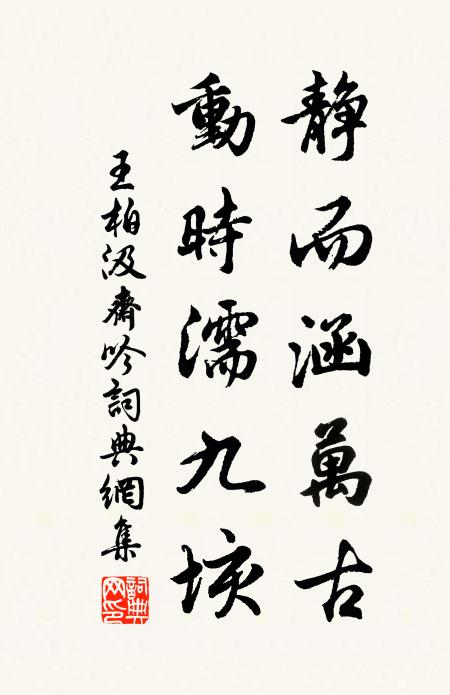 静而涵萬古
動時濡九垓
王柏汲齋吟詞典網集
詞典網印